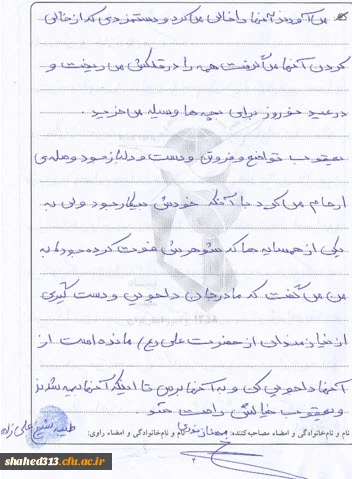 می‌آوردند آنها را خالی می‌کرد و دستمزدی که از خالی
کردن آنها می‌گرفت همه را در قلکش می‌ریخت و
در عید نوروز برای بچه‌ها وسیله می‌خرید.
یعقوب تواضع و فروتن و دست و دلباز بود و صله‌ی
ارحام می‌کرد با آنکه خودش بیکار بود ولی به
یکی از همسایه ها که شوهرش فوت کرده بود به
من می‌گفت که مادرجان دلجویی و دست گیری
از نیازمندان از حضرت علی (ع) مانده است از
آنها دلجویی کن و به آنها برس تا اینکه آنها بیمه شدند
و یعقوب خیالش راحت شد
نام و نام‌خانوادگی و امضاء مصاحبه‌کننده: نام و نام‌خانوادگی و امضاء راوی: طیبه شیخ علی زاده
۳
shahed313.cfu.ac.ir